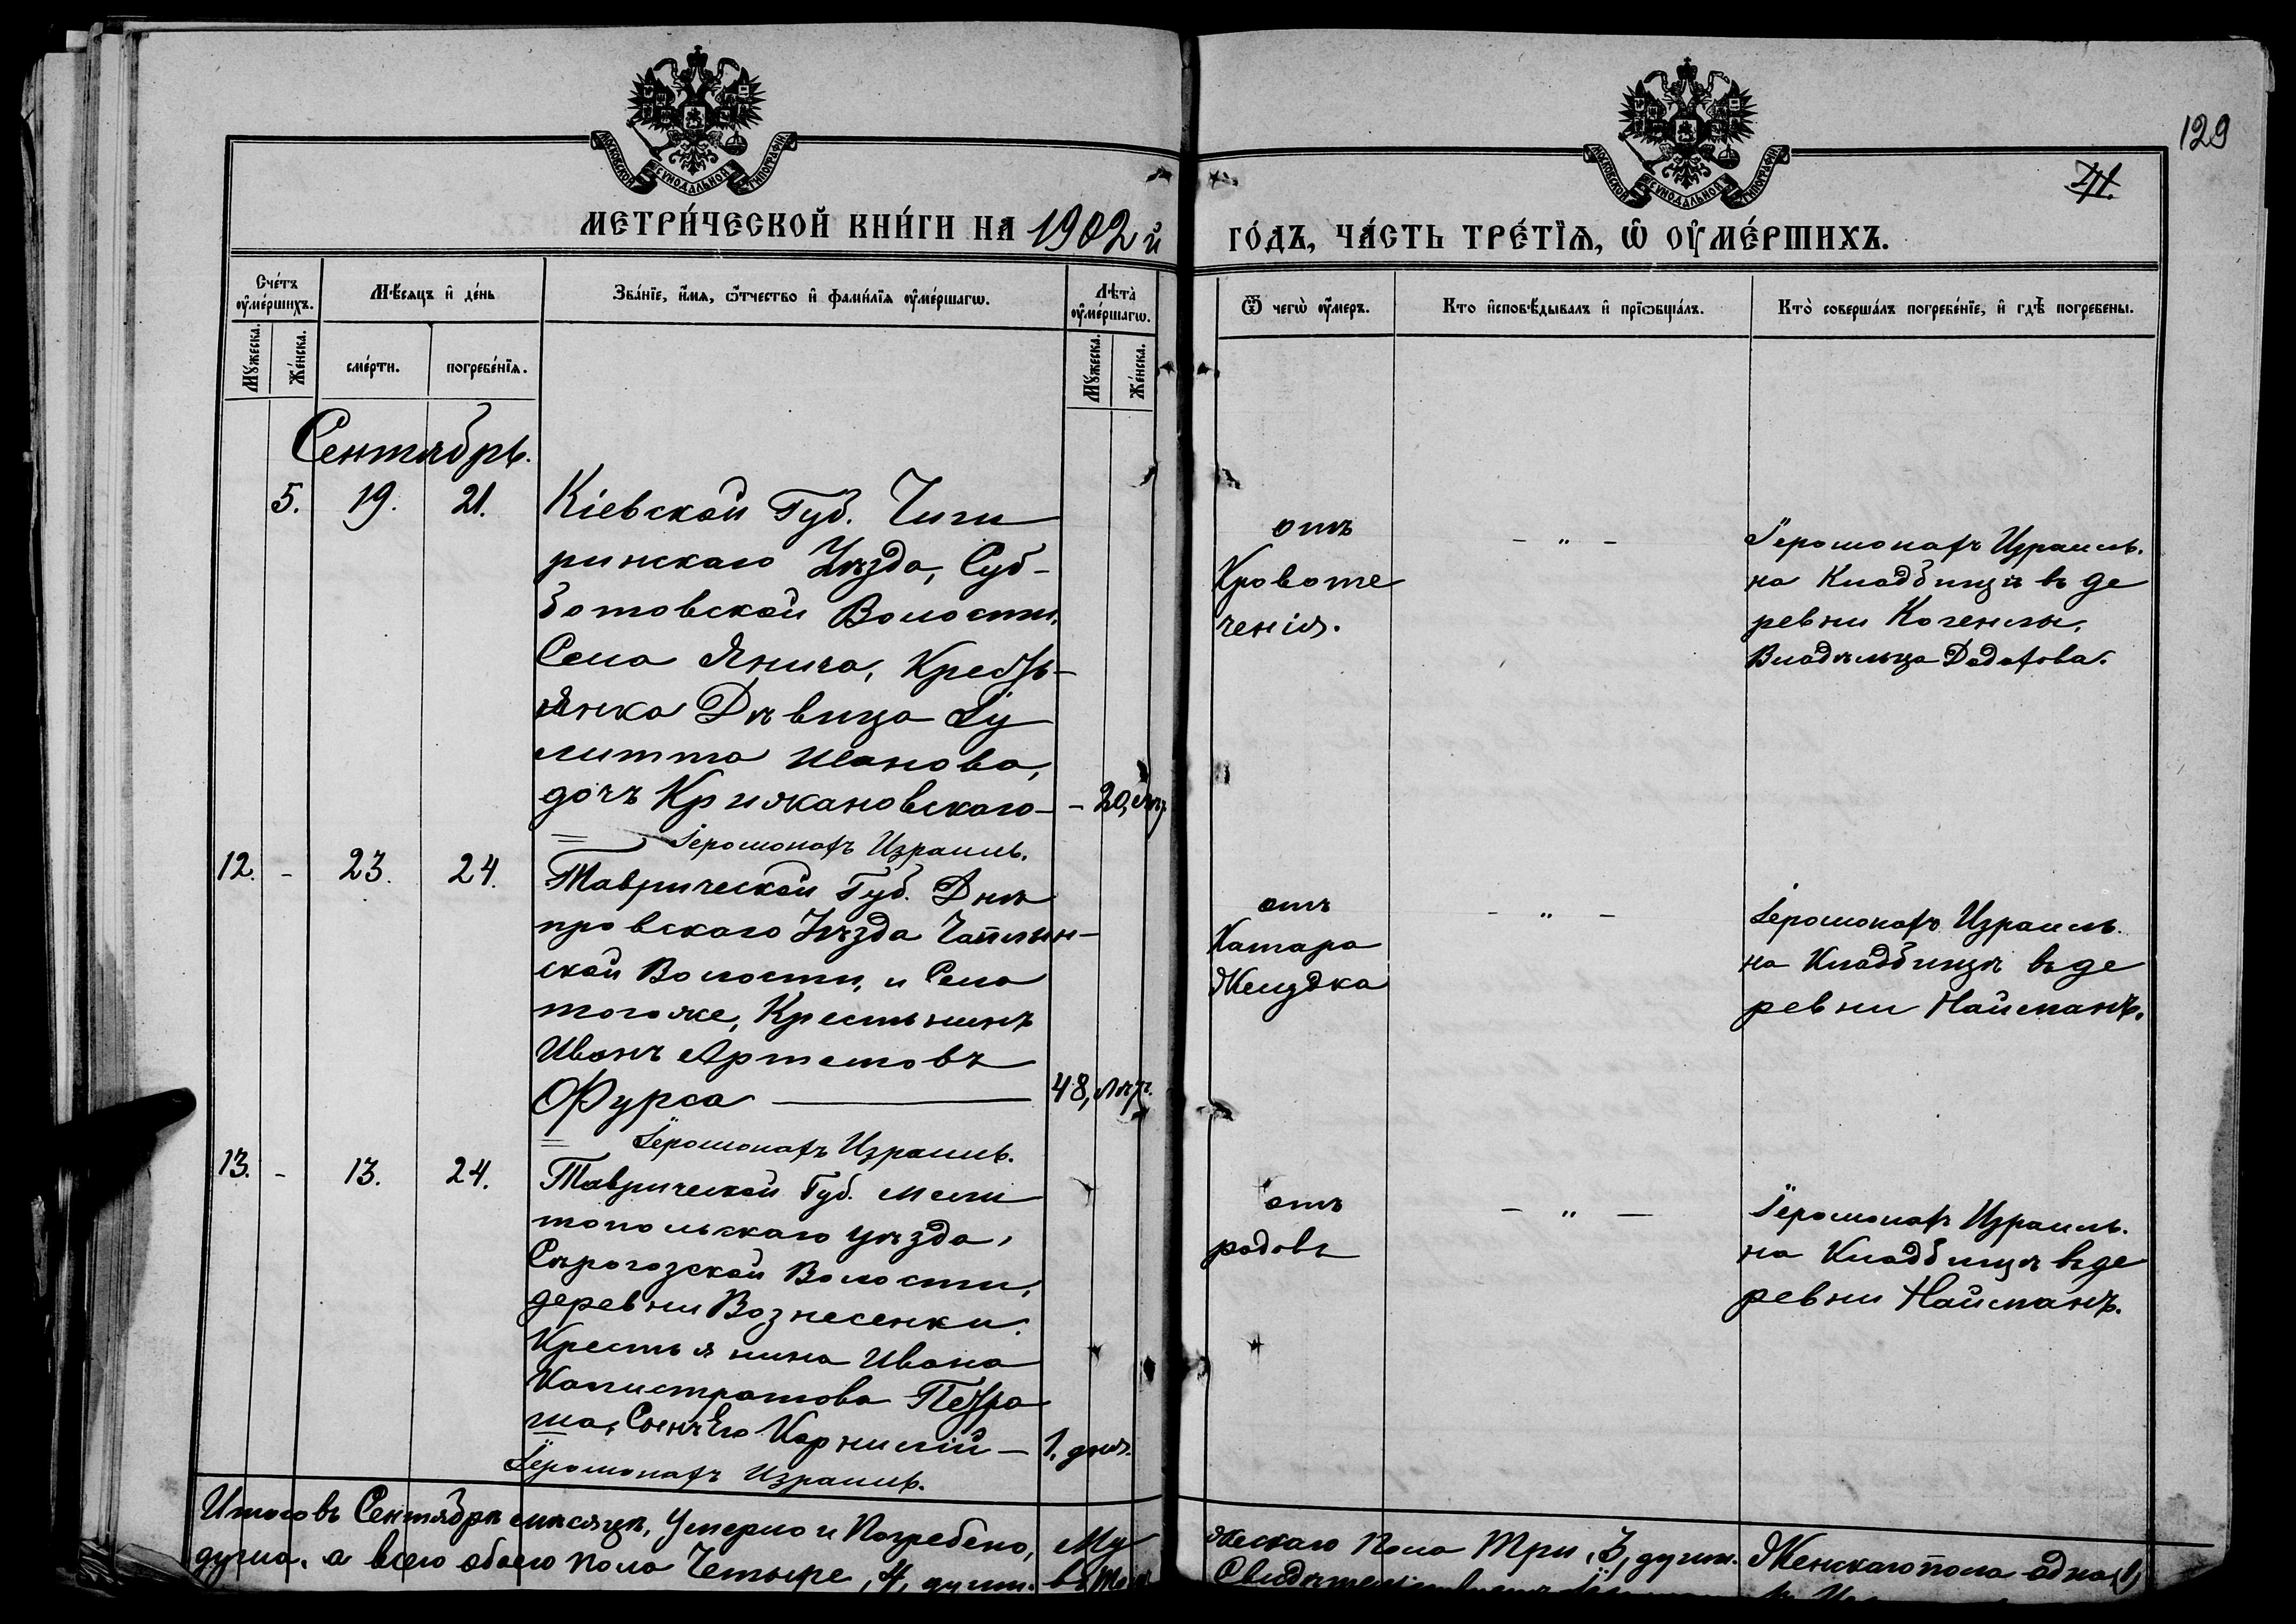 129
III.
МОСКОВСКОЙ СѴНОДАЛЬНОЙ ТИПОГРАФІИ
МОСКОВСКОЙ СѴНОДАЛЬНОЙ ТИПОГРАФІИ
МЕТРИ́ЧЕСКОЙ КНИ́ГИ НА 1902 й
ГО́ДЪ, ЧА́СТЬ ТРЕ́ТЇѦ, Ѡ ОУ҆МЕ́РШИХЪ.
Сче́тъ оу҆ме́ршихъ.
Мѣ́сяцъ и҆ де́нь
Зва́нїе, и҆́мя, ѻ҆́тчество и҆ фами́лїя оу҆ме́ршагѡ.
Лѣта̀ оу҆ме́ршагѡ.
Мꙋ́жеска.
Же́нска.
сме́рти.
погребе́нїѧ.
Мꙋ́жеска.
Же́нска.
Ѿ чегѡ̀ оу҆́меръ.
Кто и҆сповѣ́дывалъ и҆ прїѡбща́лъ.
Кто̀ соверша́лъ погребе́нїе, и҆ гдѣ̀ погребены.
Сентябрь.
5. 19. 21.
Кіевской Губ. Чиги
ринскаго Уѣзда, Суб-
ботовской Волости,
Села Янича, Кресть-
янка Дѣвица Іу
литта Иванова,
дочъ Крижановскаго - - 20, лѣт.
Іеромонахъ Израиль.
отъ
Кровоте
ченія.
- " -
Іеромонахъ Израиль.
на Кладбищѣ въ де
ревни Когенлы,
Владѣльца Дадахова.
12. - 23. 24.
Таврической Губ. Днѣ
провскаго Уѣзда Чаплын-
ской Волости, и Села
тогоже, Крестьнинъ
Иванъ Артемовъ
Фурса — 48, лѣтъ.
Іеромонахъ Израиль.
отъ
Катара
Желудка
- " -
Іеромонахъ Израиль.
на Кладбищѣ въ де
ревни Найманъ.
13. - 13. 24.
Таврической Губ. Мели
топольскаго уѣзда,
Сѣрогозской Волости,
деревни Вознесенки.
Крестьянина Ивана
Калистратова Петра
ша, Сынъ Его Карнилій - 1. дня.
Іеромонахъ Израиль.
отъ
родовъ
- " -
Іеромонахъ Израиль.
на Кладбищѣ въ де
ревни Найманъ.
Итого въ Сентябрѣ мѣсяцѣ, Умерло и Погребено, Му
жескаго Пола Три, 3, души. Женскаго пола одна (1)
душа. а всего обоего пола Четыре, 4, души.